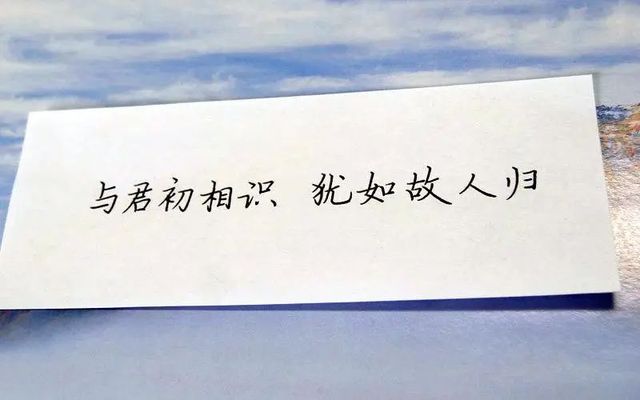 与君初相识 犹如故人归